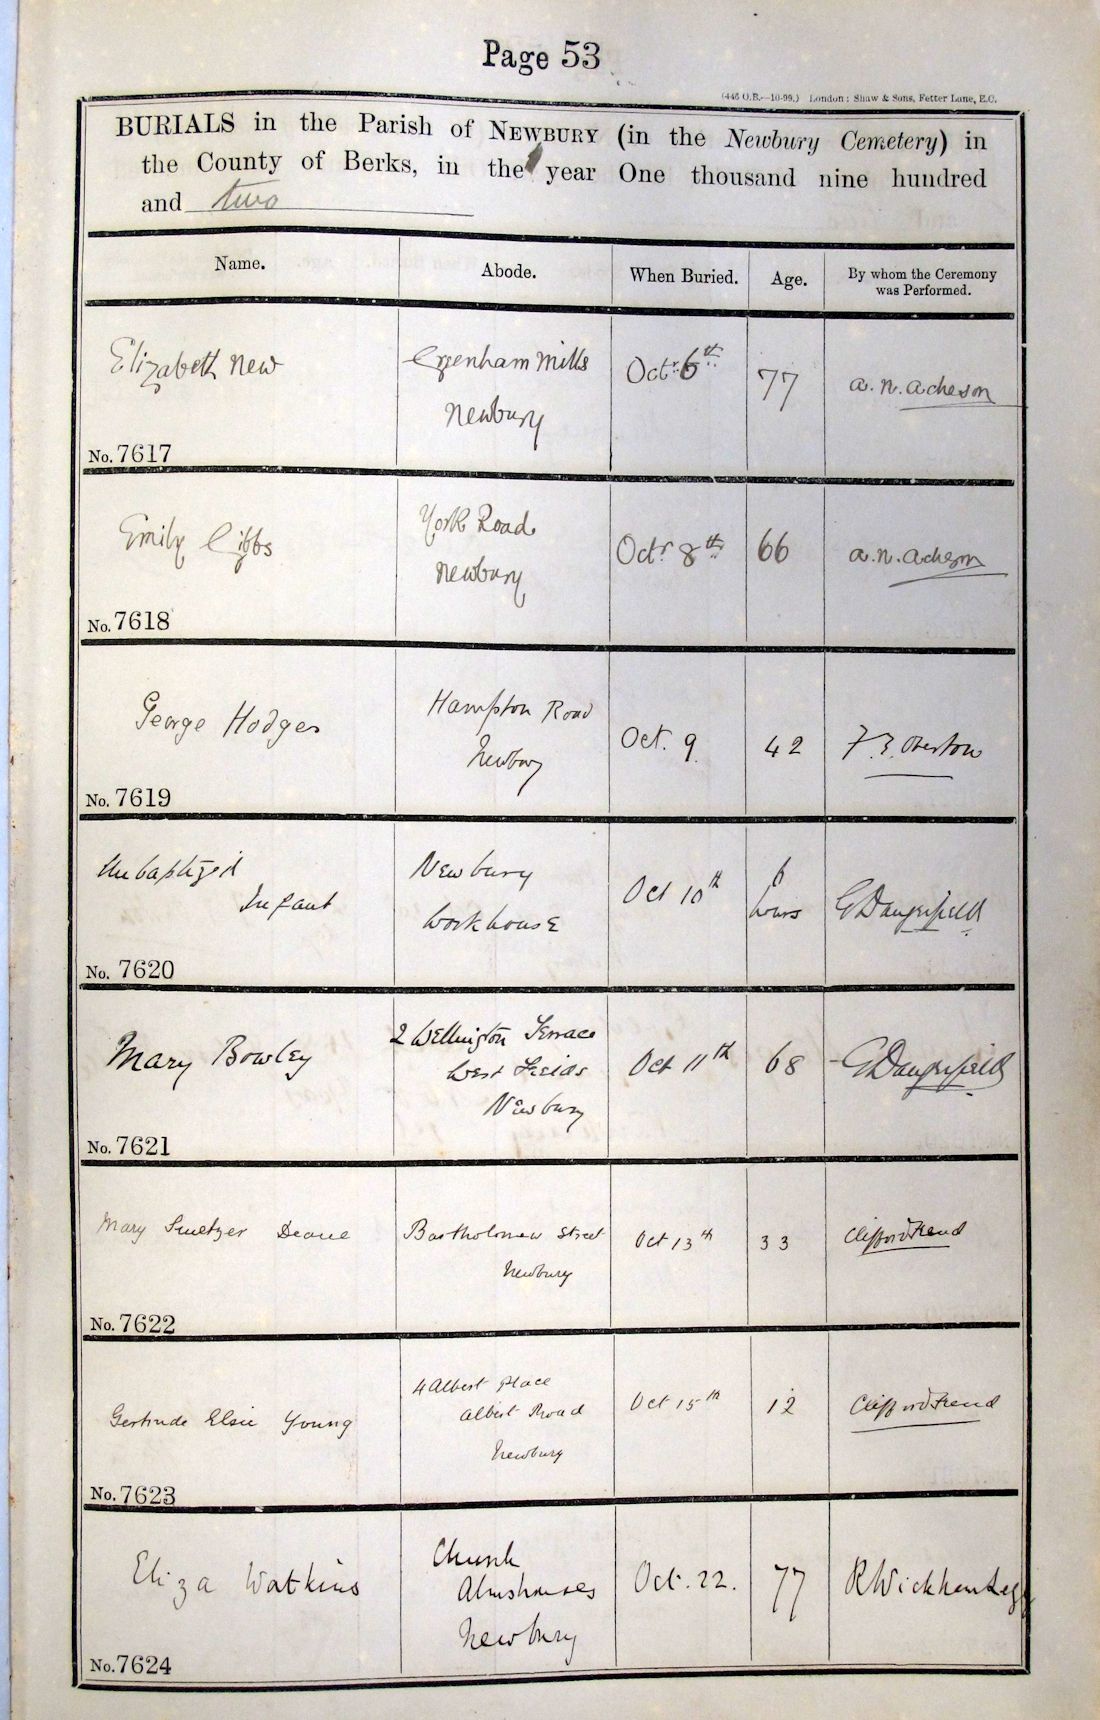 Page 53
(446 O.B.—10-99.) London: Shaw & Sons, Fetter Lane, E.C.
BURIALS in the Parish of NEWBURY (in the Newbury Cemetery) in
the County of Berks, in the year One thousand nine hundred
and two
Name. Abode. When Buried. Age. By whom the Ceremony
was Performed.
Elizabeth New Greenham Mills Octr. 6th 77 A. N. Acheson
Newbury
No. 7617
Emily Gibbs York Road Octr 8th 66 A. N. Acheson
Newbury
No. 7618
George Hodges Hampton Road Oct. 9. 42 F. E. Overton
Newbury
No. 7619
Unbaptized Newbury Oct 10th 6 G Dangerfield
Infant Workhouse hours
No. 7620
Mary Bowley 2 Wellington Terrace Oct 11th 68 G Dangerfield
West Fields
Newbury
No. 7621
Mary Smeltzer Deane Bartholomew Street Oct 13th 33 Clifford Frend
Newbury
No. 7622
Gertrude Elsie Young 4 Albert Place Oct 15th 12 Clifford Frend
Albert Road
Newbury
No. 7623
Eliza Watkins Church Oct. 22. 77 R Wickham Legg
Almshouses
Newbury
No. 7624